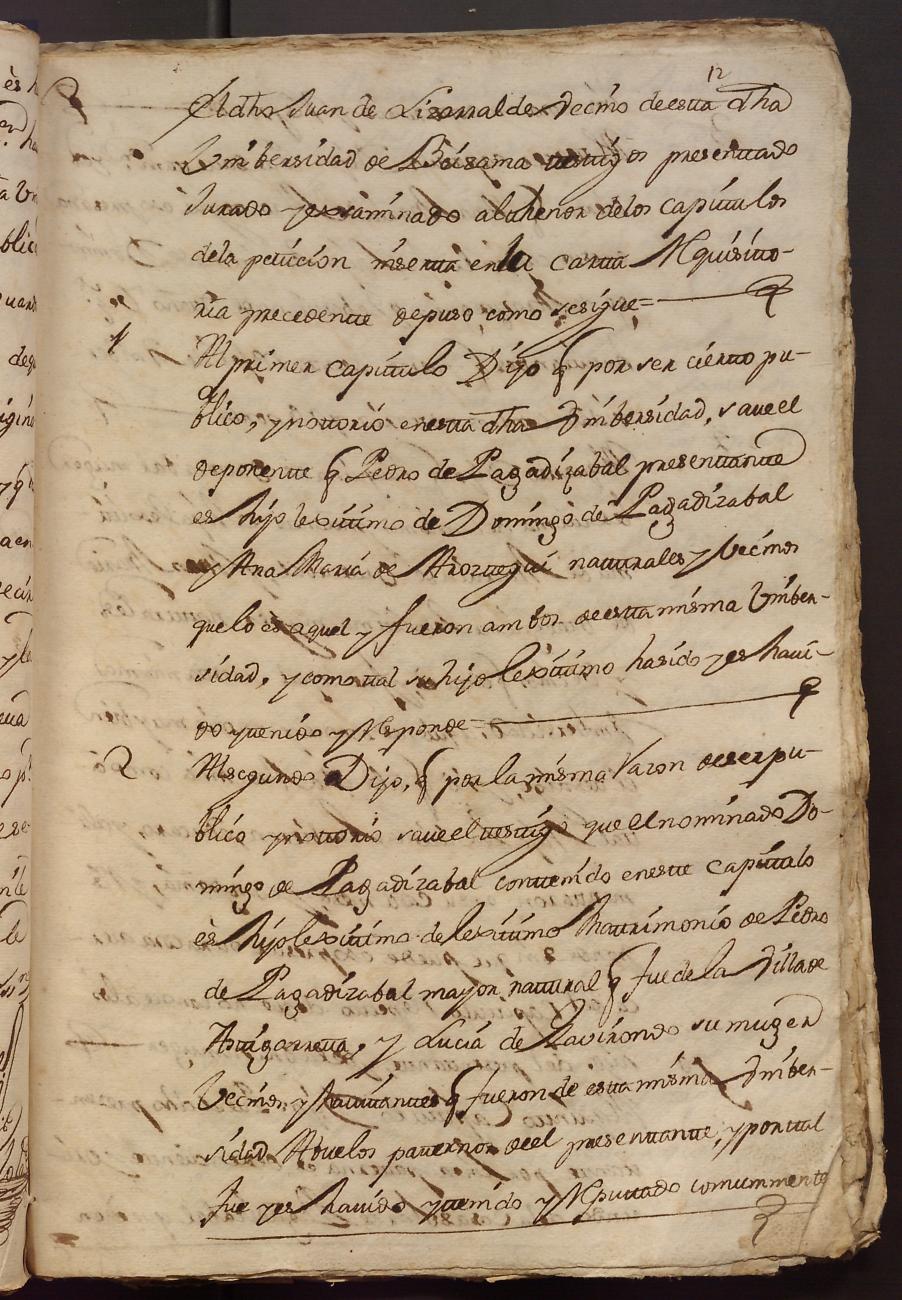 12
El dho Juan de Lizarralde Vecino de esta dha
Vnibersidad de Beizama testigo presentado
Jurado y exsaminado al thenor delos capitulos
dela peticion inserta en la carta Requisito-
ria precedente depuso como se sigue=
1
Al primer capitulo Dijo q por ser cierto pu-
blico, y notorio en esta dha Vnibersidad, save el
deponente q Pedro de Pagadizabal presentante
es hijo lexitimo de Domingo de Pagadizabal
y Ana Maria de Aroztegui naturales y Vecinos
que lo es aquel y fueron ambos de esta misma Vniber-
sidad, y como tal su hijo lexitimo ha sido y es havi-
do y tenido y Responde
2
Al segundo Dijo, q por la misma Razon de ser pu-
blico y notorio save el testigo que el nominado Do-
mingo de Pagadizabal contenido en este capitulo
es hijo lexitimo de lexitimo Matrimonio de Pedro
de Pagadizabal mayor natural q fue de la Villa de
Astigarreta, y Lucia de Lavirondo su muger
Vecinos y havitantes q fueron de esta misma Vniber-
sidad Abuelos paternos de el presentante, y por tal
fue y es havido y tenido y Reputado comunmente